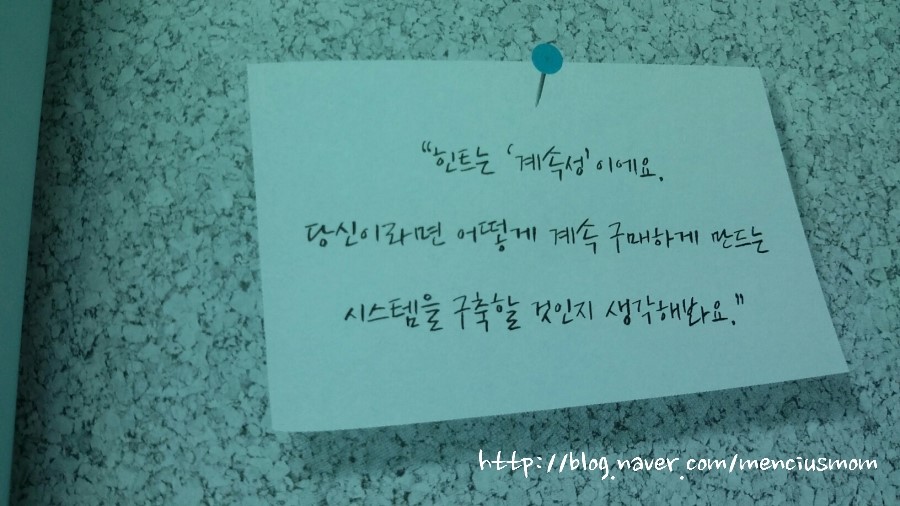 “힌트는 ‘계속성’이에요.
당신이라면 어떻게 계속 구매하게 만드는
시스템을 구축할 것인지 생각해봐요.”
http://blog.naver.com/menciusmom